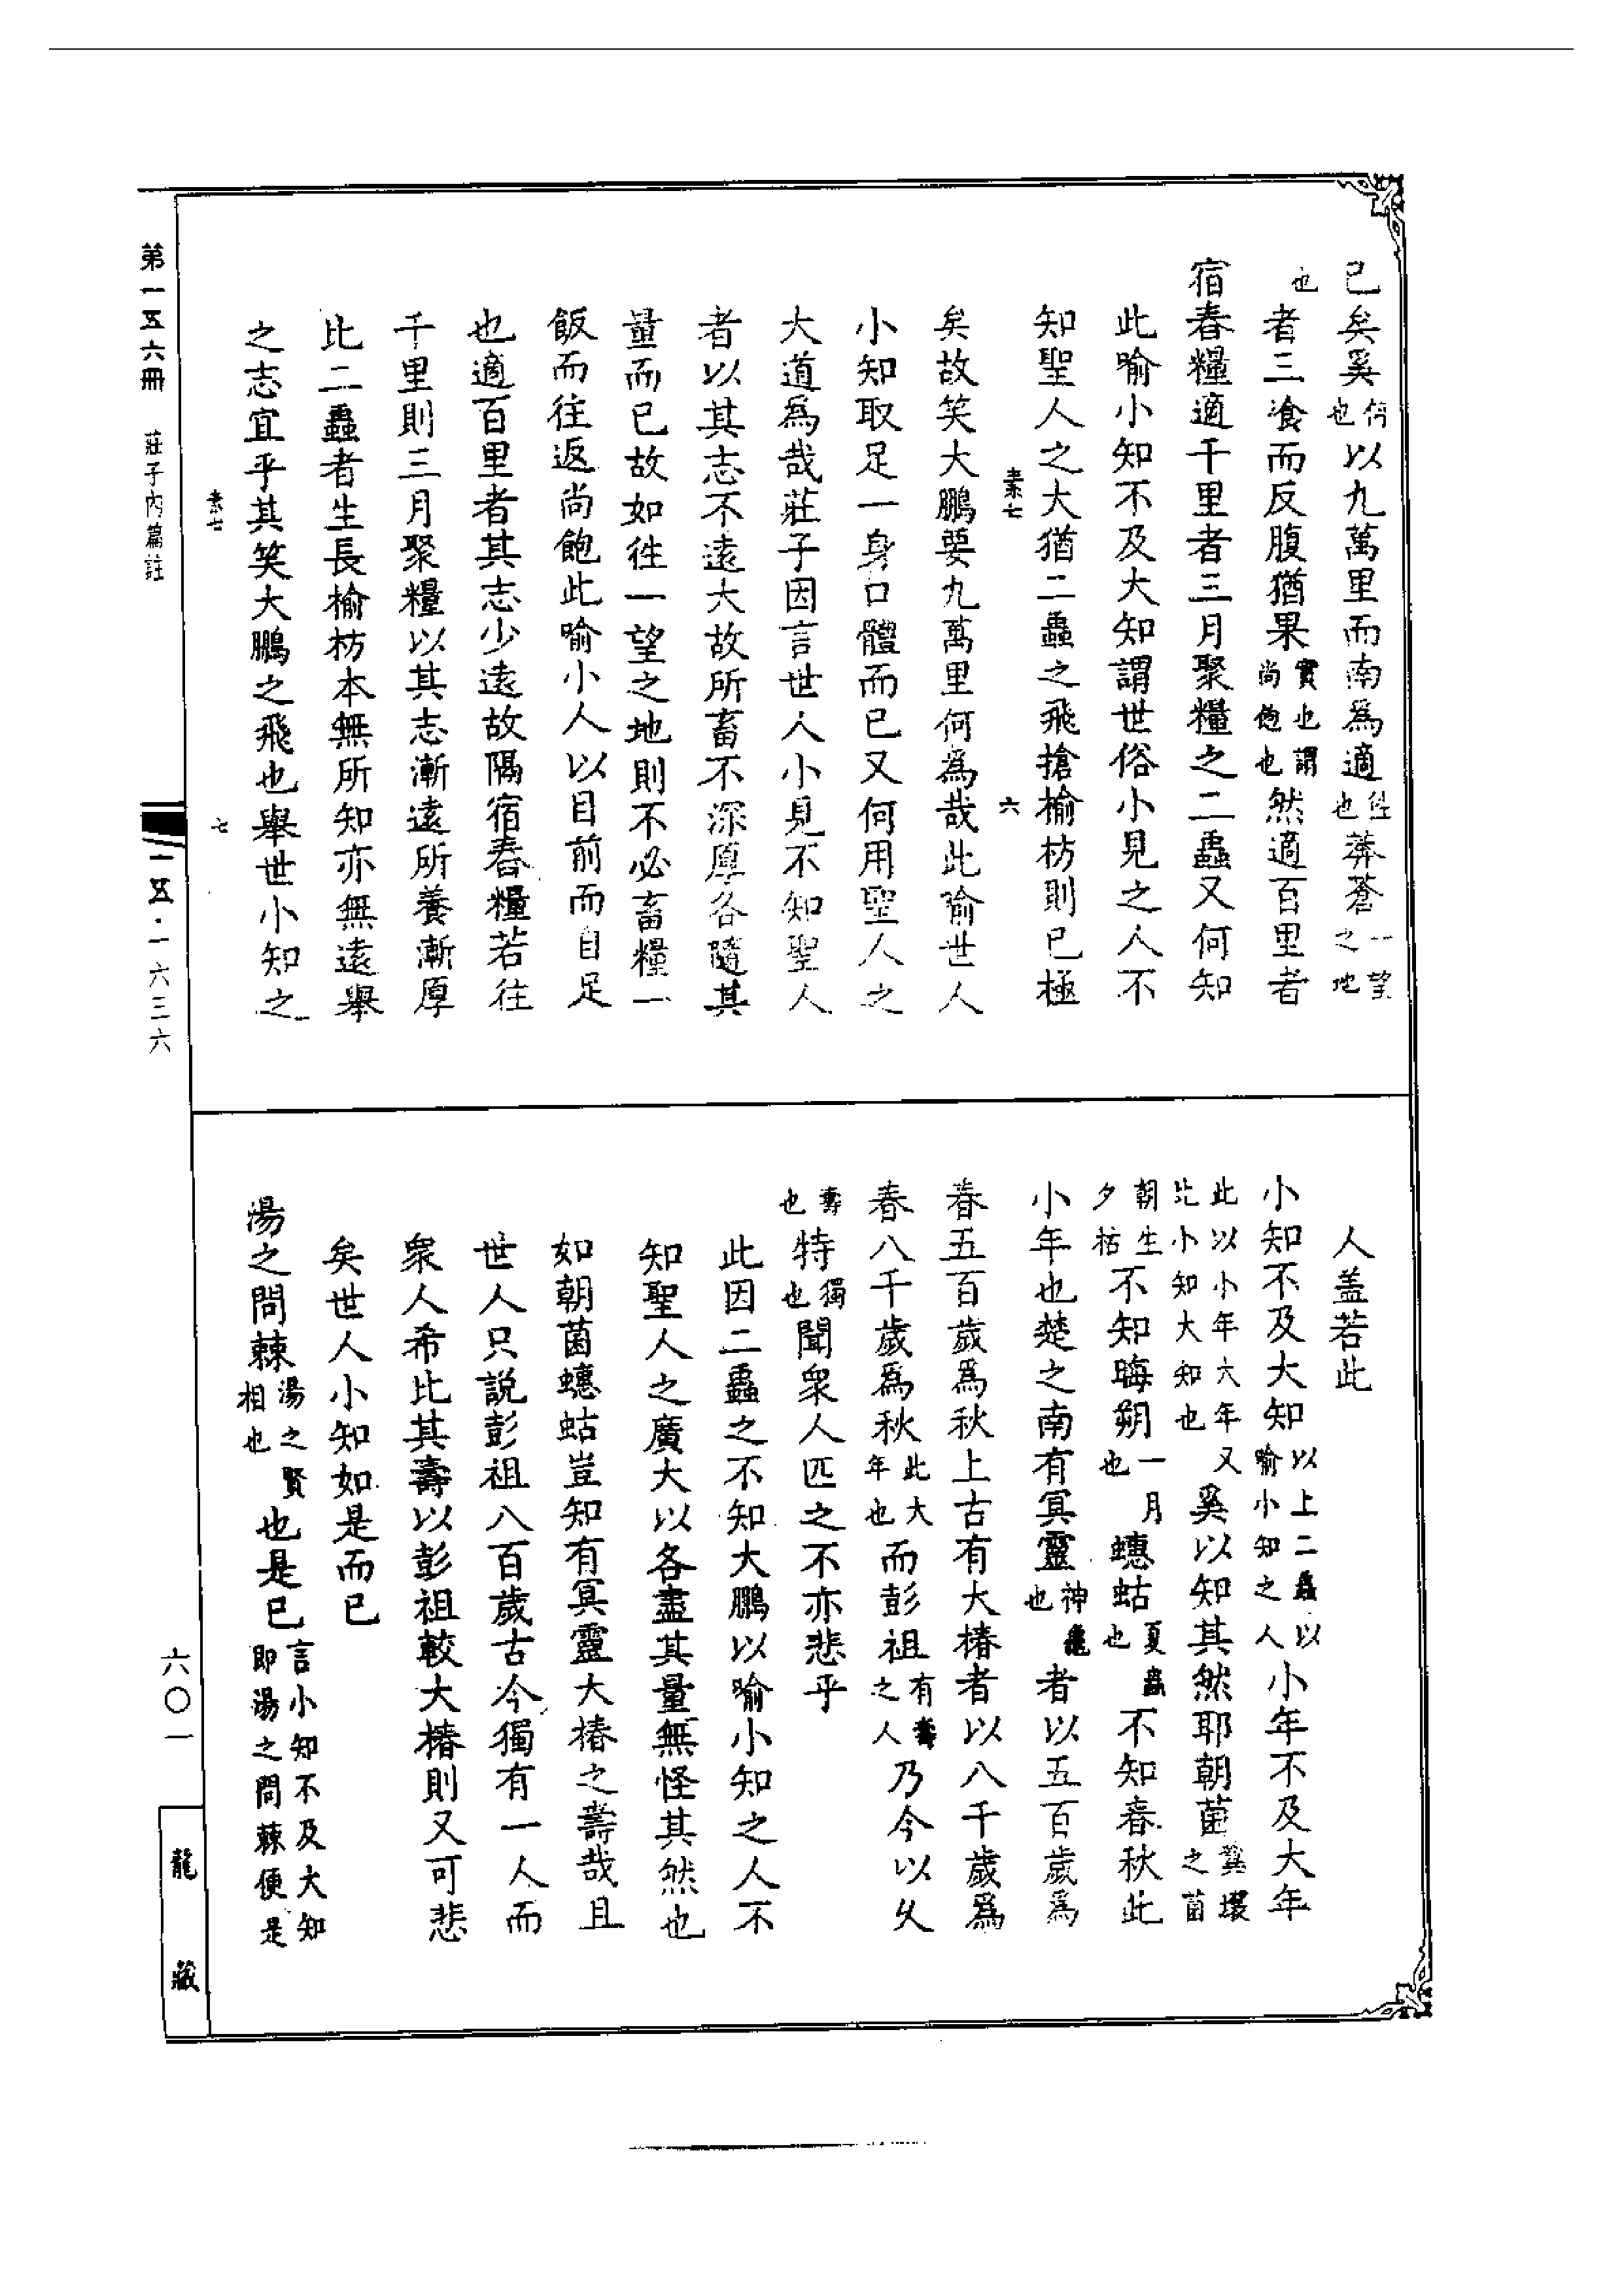 已矣奚何也以九萬里而南爲適徃也莽蒼一望之地
也者三飡而反腹猶果實也謂尚飽也然適百里者
宿舂糧適千里者三月聚糧之二蟲又何知
此喻小知不及大知謂世俗小見之人不
知聖人之大猶二蟲之飛搶榆枋則已極
素七 六
矣故笑大鵬要九萬里何爲哉此喻世人
小知取足一身口體而已又何用聖人之
大道爲哉莊子因言世人小見不知聖人
者以其志不遠大故所畜不深厚各隨其
量而已故如徃一望之地則不必畜糧一
飯而往返尚飽此喻小人以目前而自足
也適百里者其志少遠故隔宿舂糧若往
千里則三月聚糧以其志漸遠所養漸厚
比二蟲者生長榆枋本無所知亦無遠舉
之志宜乎其笑大鵬之飛也舉世小知之
素七 七
人盖若此
小知不及大知以上二蟲以喻小知之人小年不及大年
此以小年六年又比小知大知也奚以知其然耶朝菌糞壤之菌
朝生夕枯不知晦朔一月也蟪蛄夏蟲也不知春秋此
小年也楚之南有冥靈神龜也者以五百歲爲
春五百歲爲秋上古有大椿者以八千歲爲
春八千歲爲秋此大年也而彭祖有壽之人乃今以久
壽也特獨也聞衆人匹之不亦悲乎
此因二蟲之不知大鵬以喻小知之人不
知聖人之廣大以各盡其量無怪其然也
如朝菌蟪蛄豈知有冥靈大椿之壽哉且
世人只説彭祖八百歲古今獨有一人而
衆人希比其壽以彭祖較大椿則又可悲
矣世人小知如是而已
湯之問棘湯之賢相也也是已言小知不及大知即湯之問棘便是
第一五六冊 莊子內篇註
一五·一六三六
六〇一
龍藏